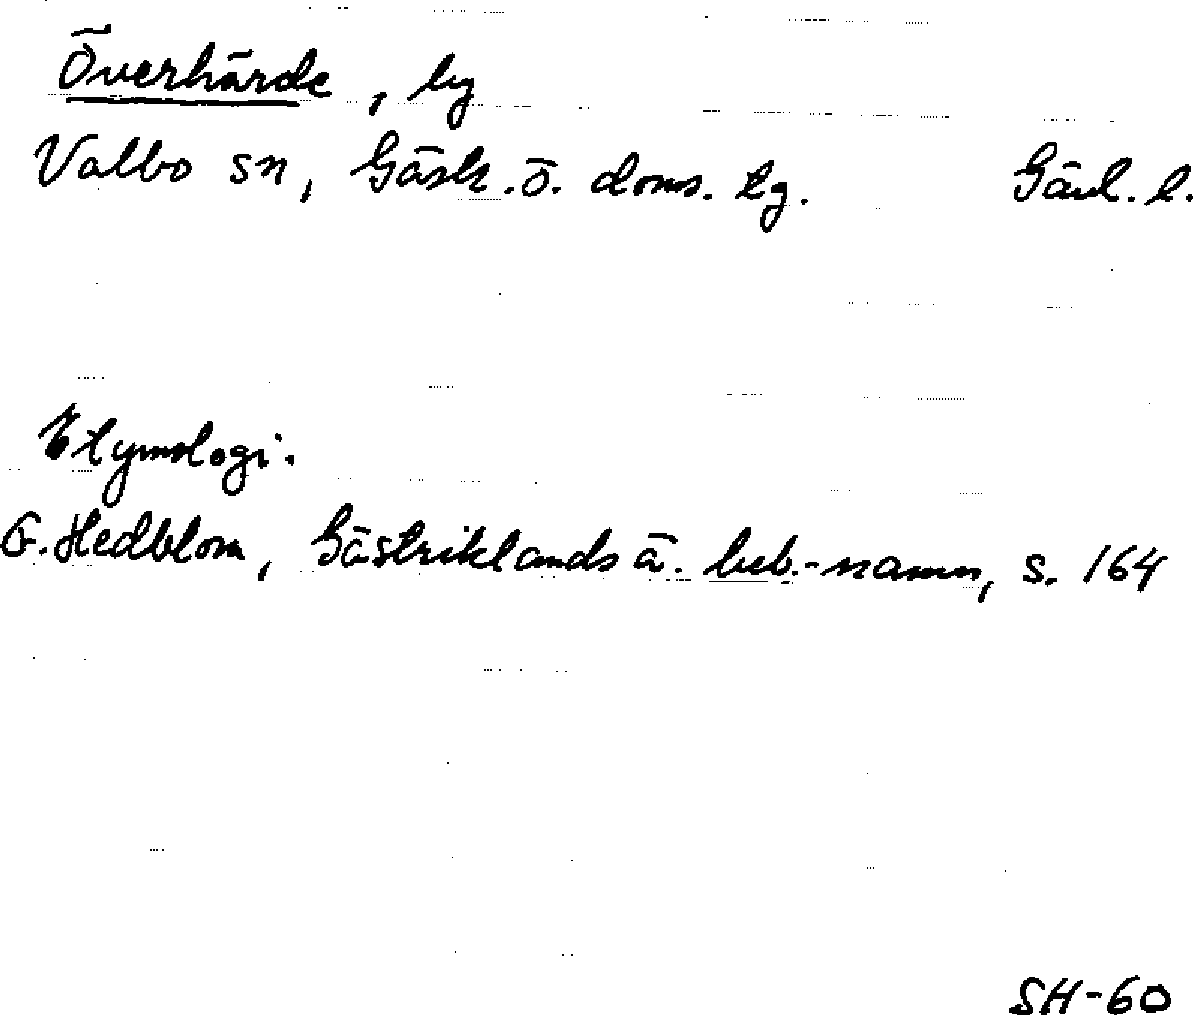 Överhärde, by
Valbo sn, Gästr. ö. doms. tg. Gävl. l.
Etymologi.
F. Hedblom, Gästriklands ä. beb.-namn, s. 164
SH-60